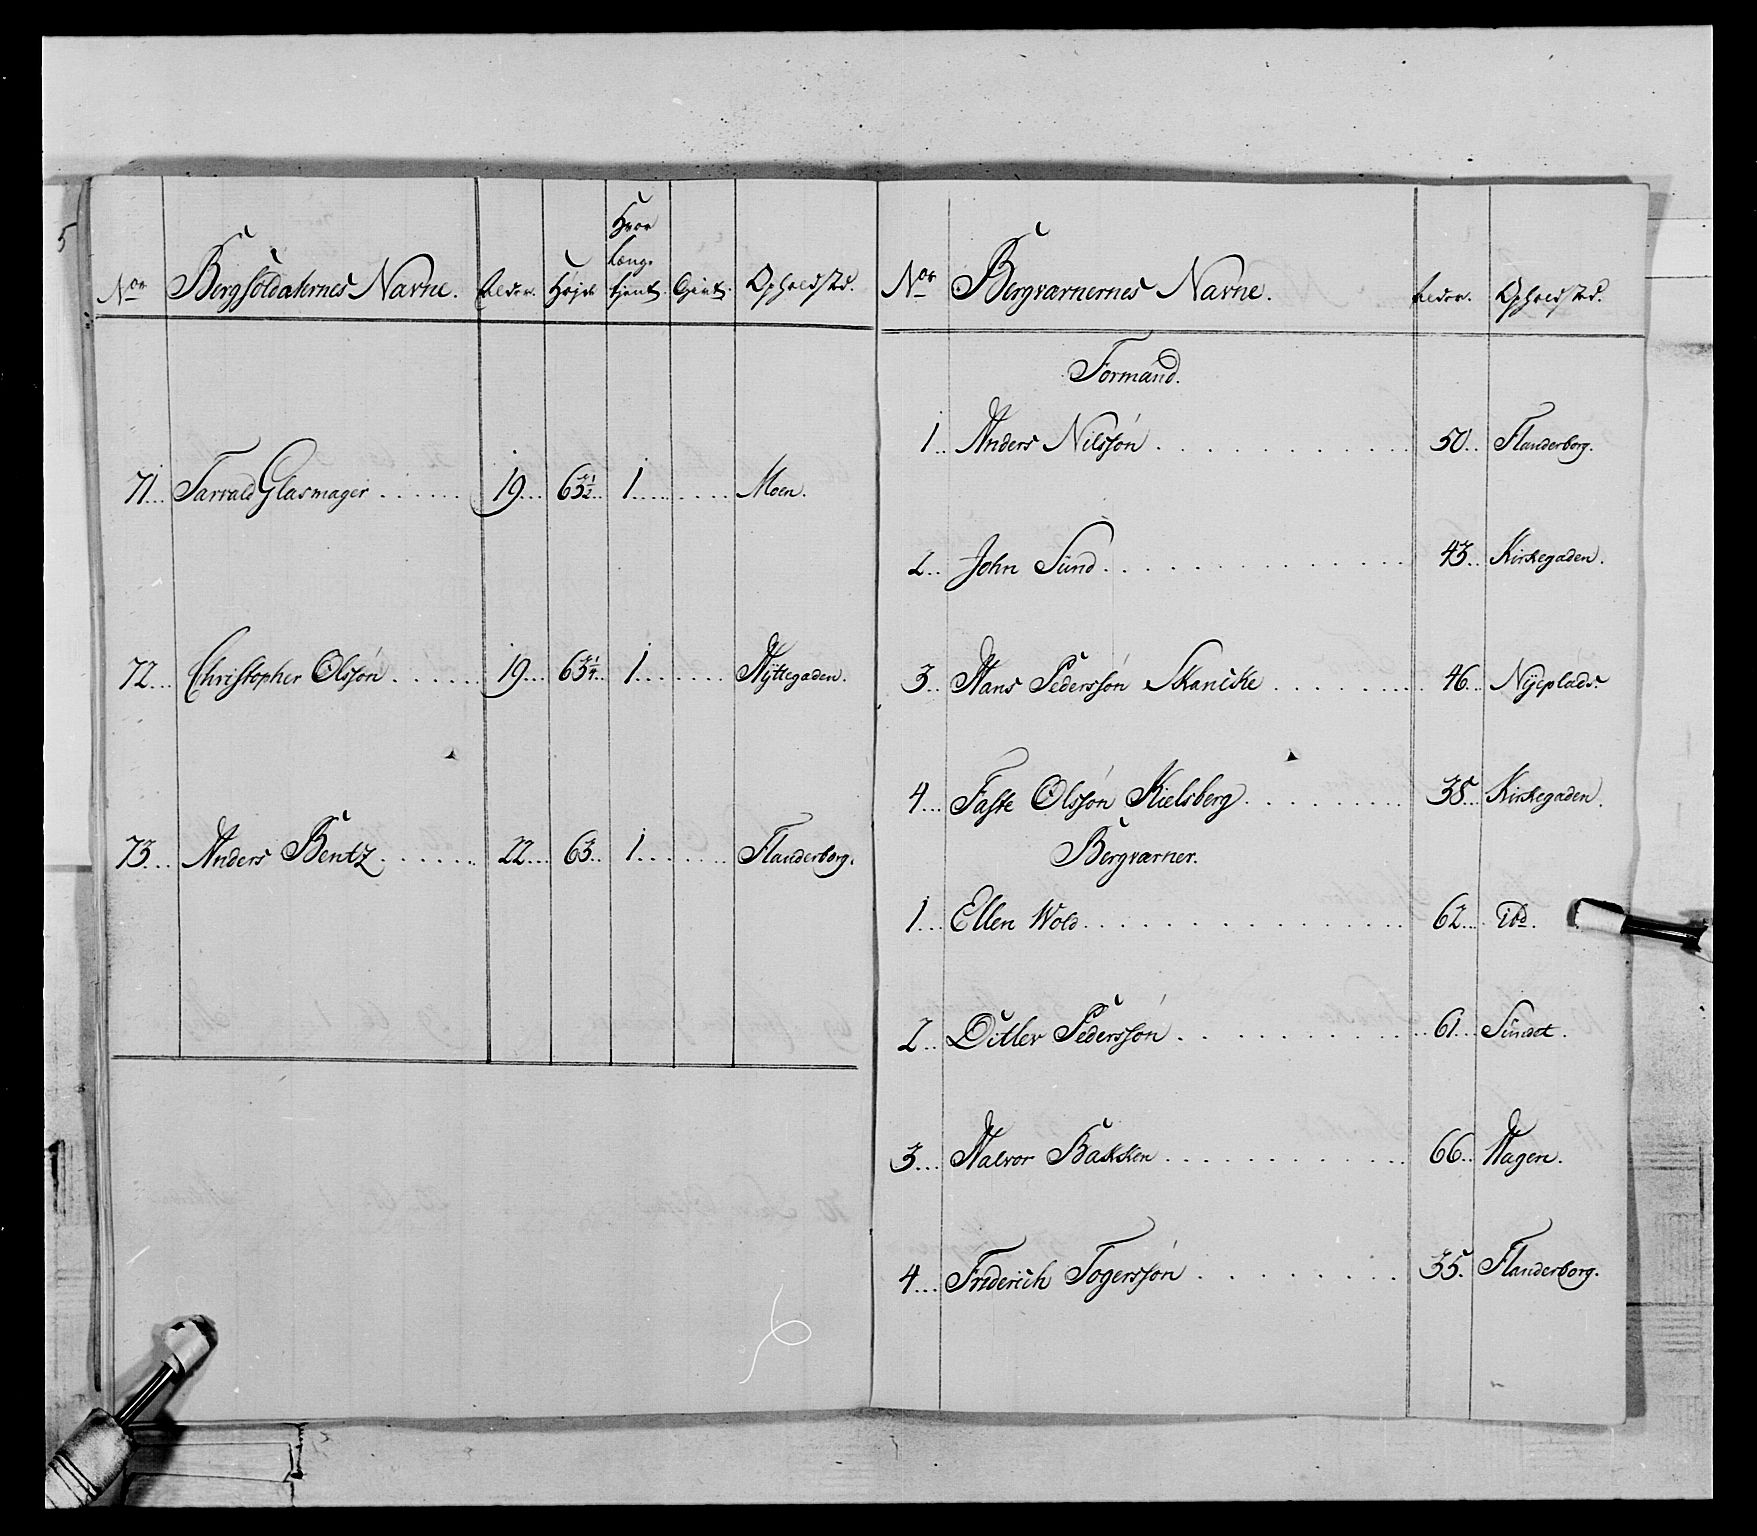 Nor Bergsoldaternes Navne. Alder. Højde Hvor længe tjent. Givt. Opholdsted.
71... Tarrald Glasmager ...... 19... 63½.. 1..... .... Moen.
72... Christopher Olssøn ...... 19... 63¼.. 1....... Hÿttegaden.
73... Anders Bentz ...... 22... 63.. 1....... Flanderborg.
Nor Bergværnernes Navne. Alder. Opholdsted.
Formænd.
1.. Anders Nilssøn .......... 50.. Flanderborg.
2.. John Sünd ............ 43.. Kirkegaden.
3.. Hans Pederssøn Skancke ........ 46... Nÿeplads.
4... Faste Olssøn Kielsberg ........ 38... Kirkegaden.
Bergværner.
1... Ellen Wold ............ 62... Ibd.
2.. Ditlev Pederssøn .......... 61... Sündet.
3... Halvor Bakken .......... 66.. Hagen.
4... Frederich Togerssøn ......... 35. Flanderborg.